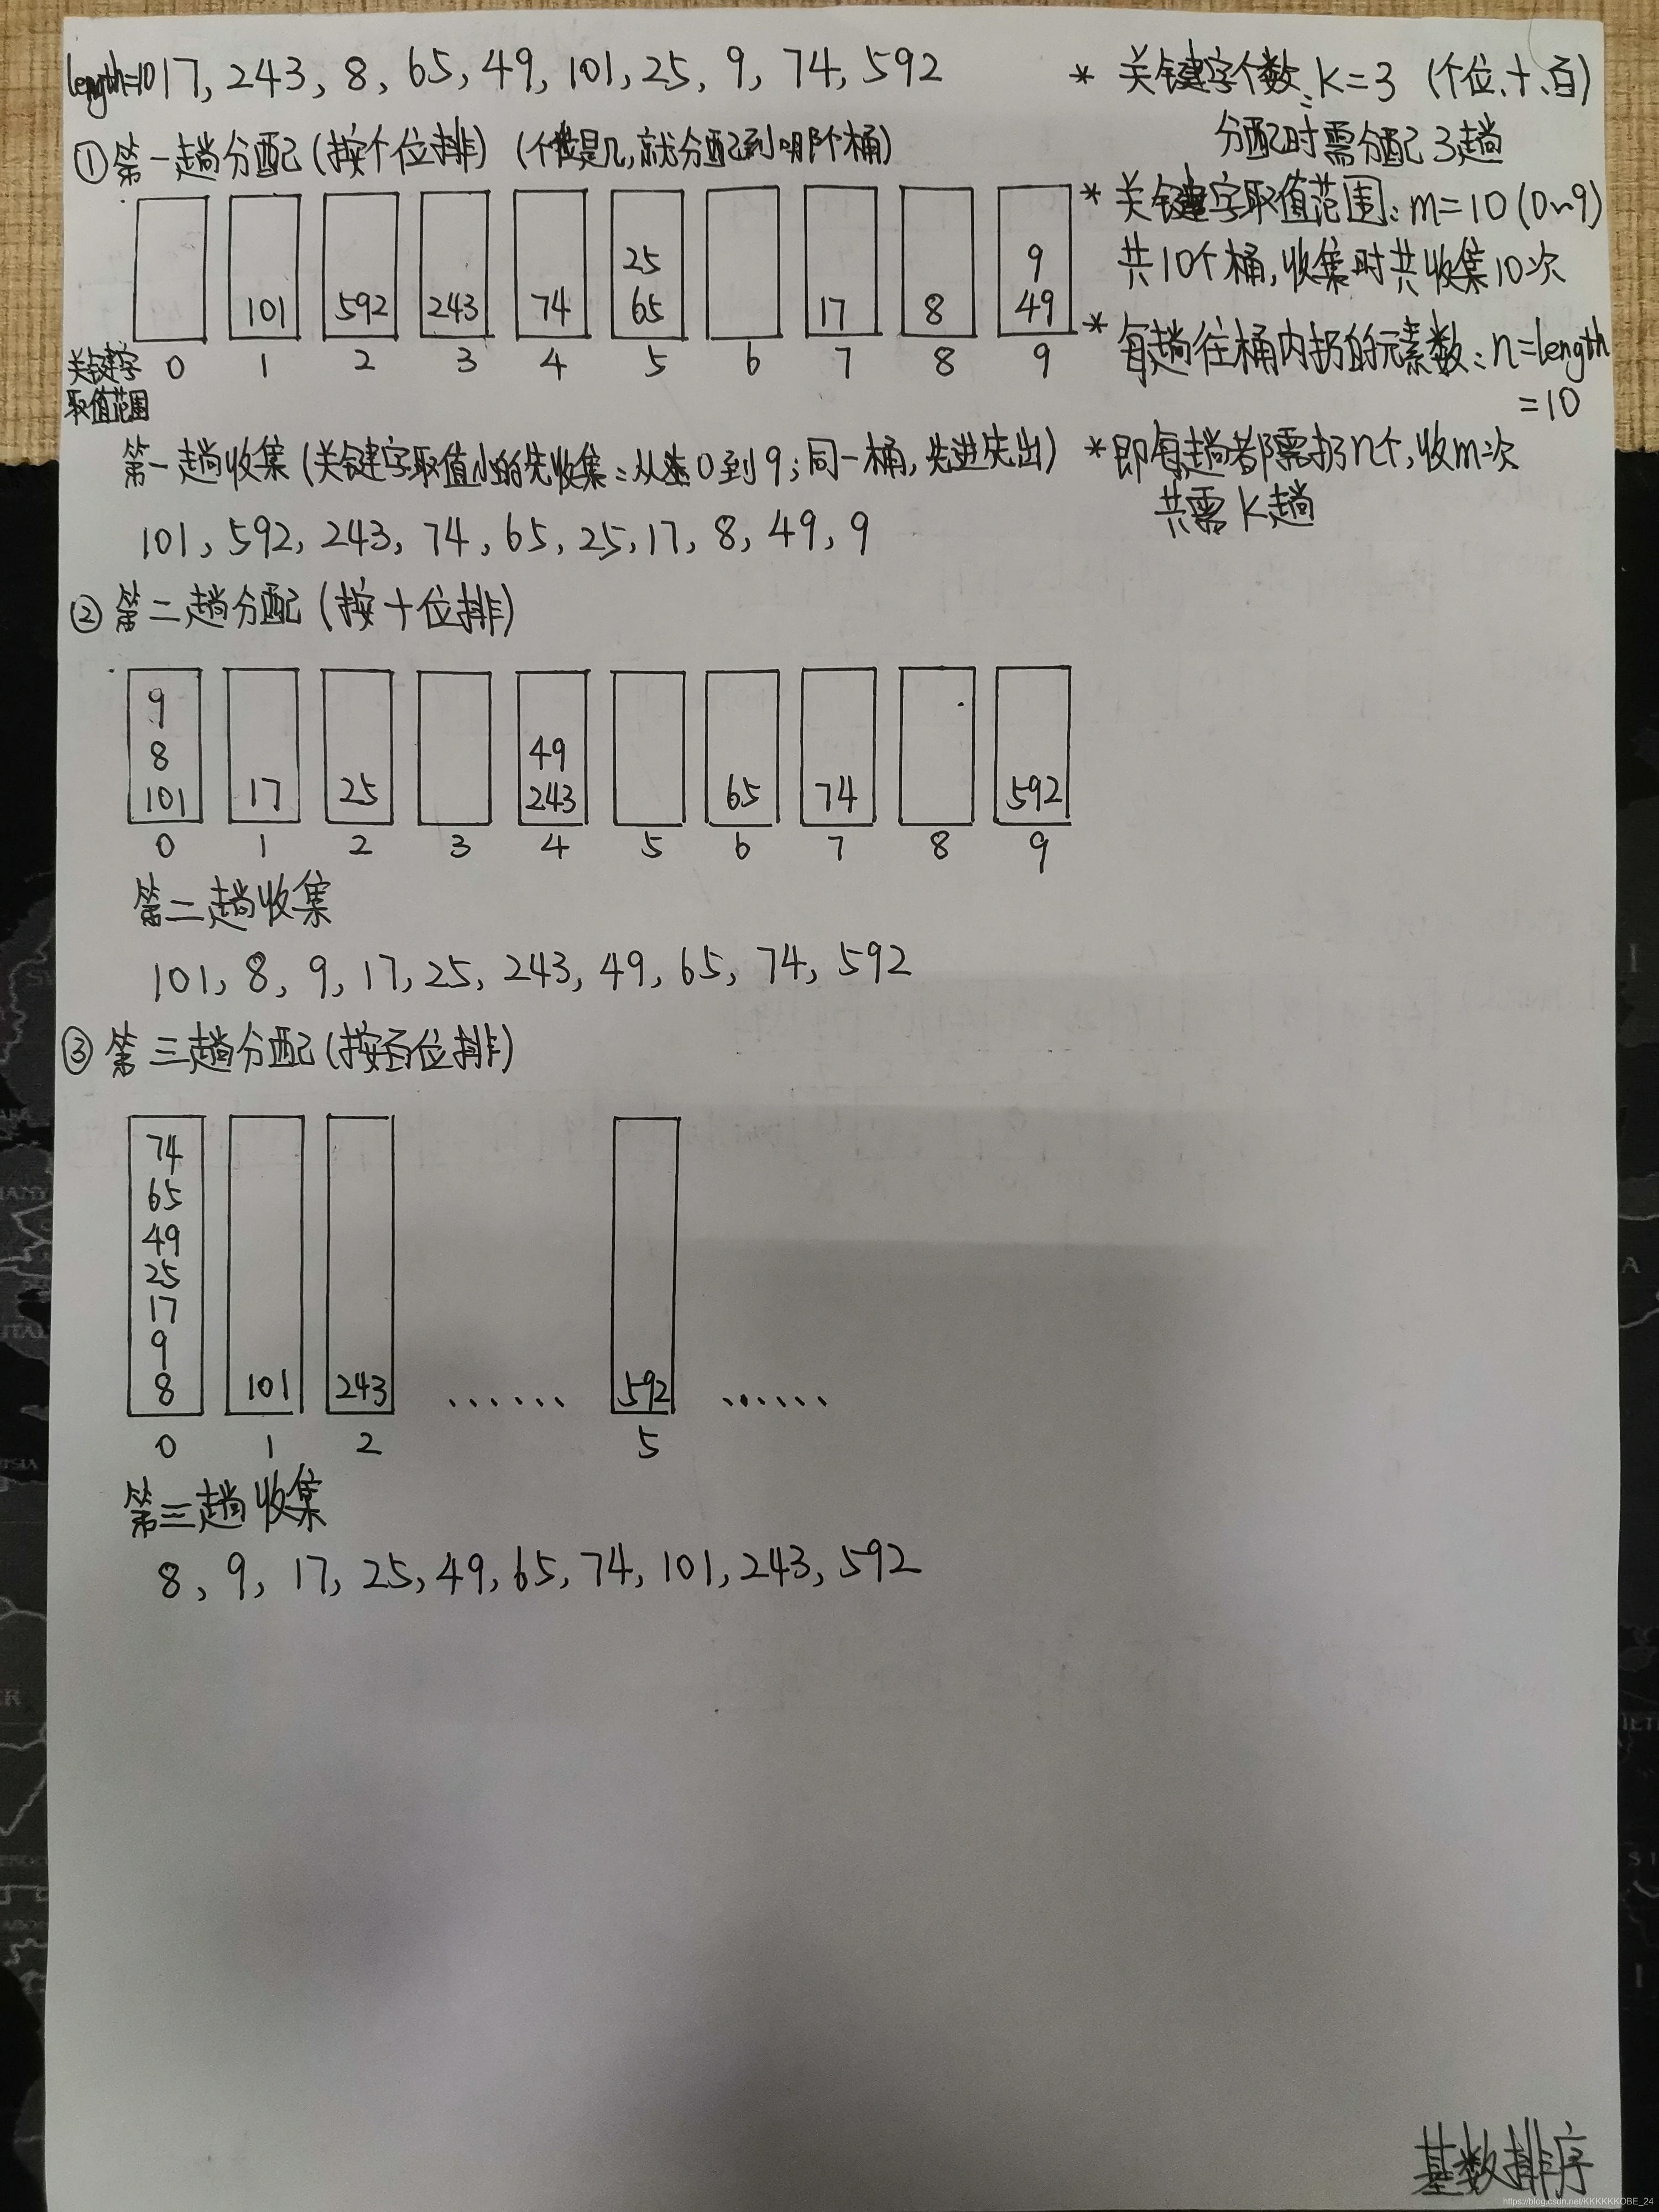 length=10 17, 243, 8, 65, 49, 101, 25, 9, 74, 592
①第一趟分配(按个位排) (个位是几,就分配到哪个桶)
25 9
101 592 243 74 65 17 8 49
关键字 0 1 2 3 4 5 6 7 8 9
取值范围
第一趟收集(关键字取值小的先收集:从0到9;同一桶,先进先出)
101, 592, 243, 74, 65, 25, 17, 8, 49, 9
* 关键字个数:K=3 (个位、十、百)
分配时需分配3趟
* 关键字取值范围:m=10(0~9)
共10个桶,收集时共收集10次
* 每趟往桶内扔的元素数:n=length
=10
*即每趟都需扔n个,收m次
共需K趟
②第二趟分配(按十位排)
9
8 49
101 17 25 243 65 74 592
0 1 2 3 4 5 6 7 8 9
第二趟收集
101, 8, 9, 17, 25, 243, 49, 65, 74, 592
③第三趟分配(按百位排)
74
65
49
25
17
9
8 101 243 …… 592 ……
0 1 2 5
第三趟收集
8, 9, 17, 25, 49, 65, 74, 101, 243, 592
基数排序
https://blog.csdn.net/KKKKKKOBE_24